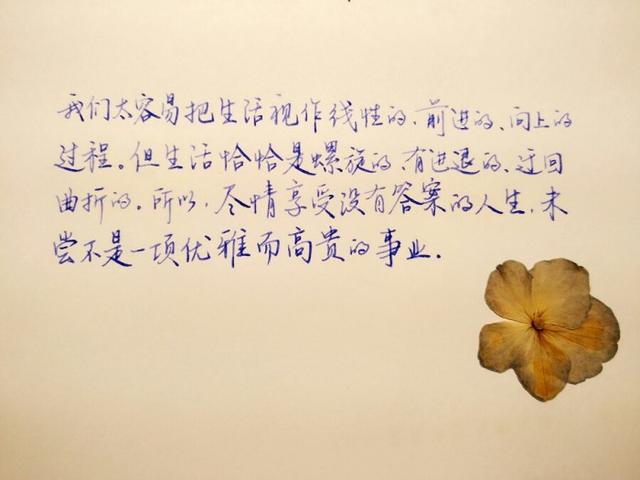 我们太容易把生活视作线性的、前进的、向上的
过程。但生活恰恰是螺旋的、有进退的、迂回
曲折的。所以，尽情享受没有答案的人生，未
尝不是一项优雅而高贵的事业.